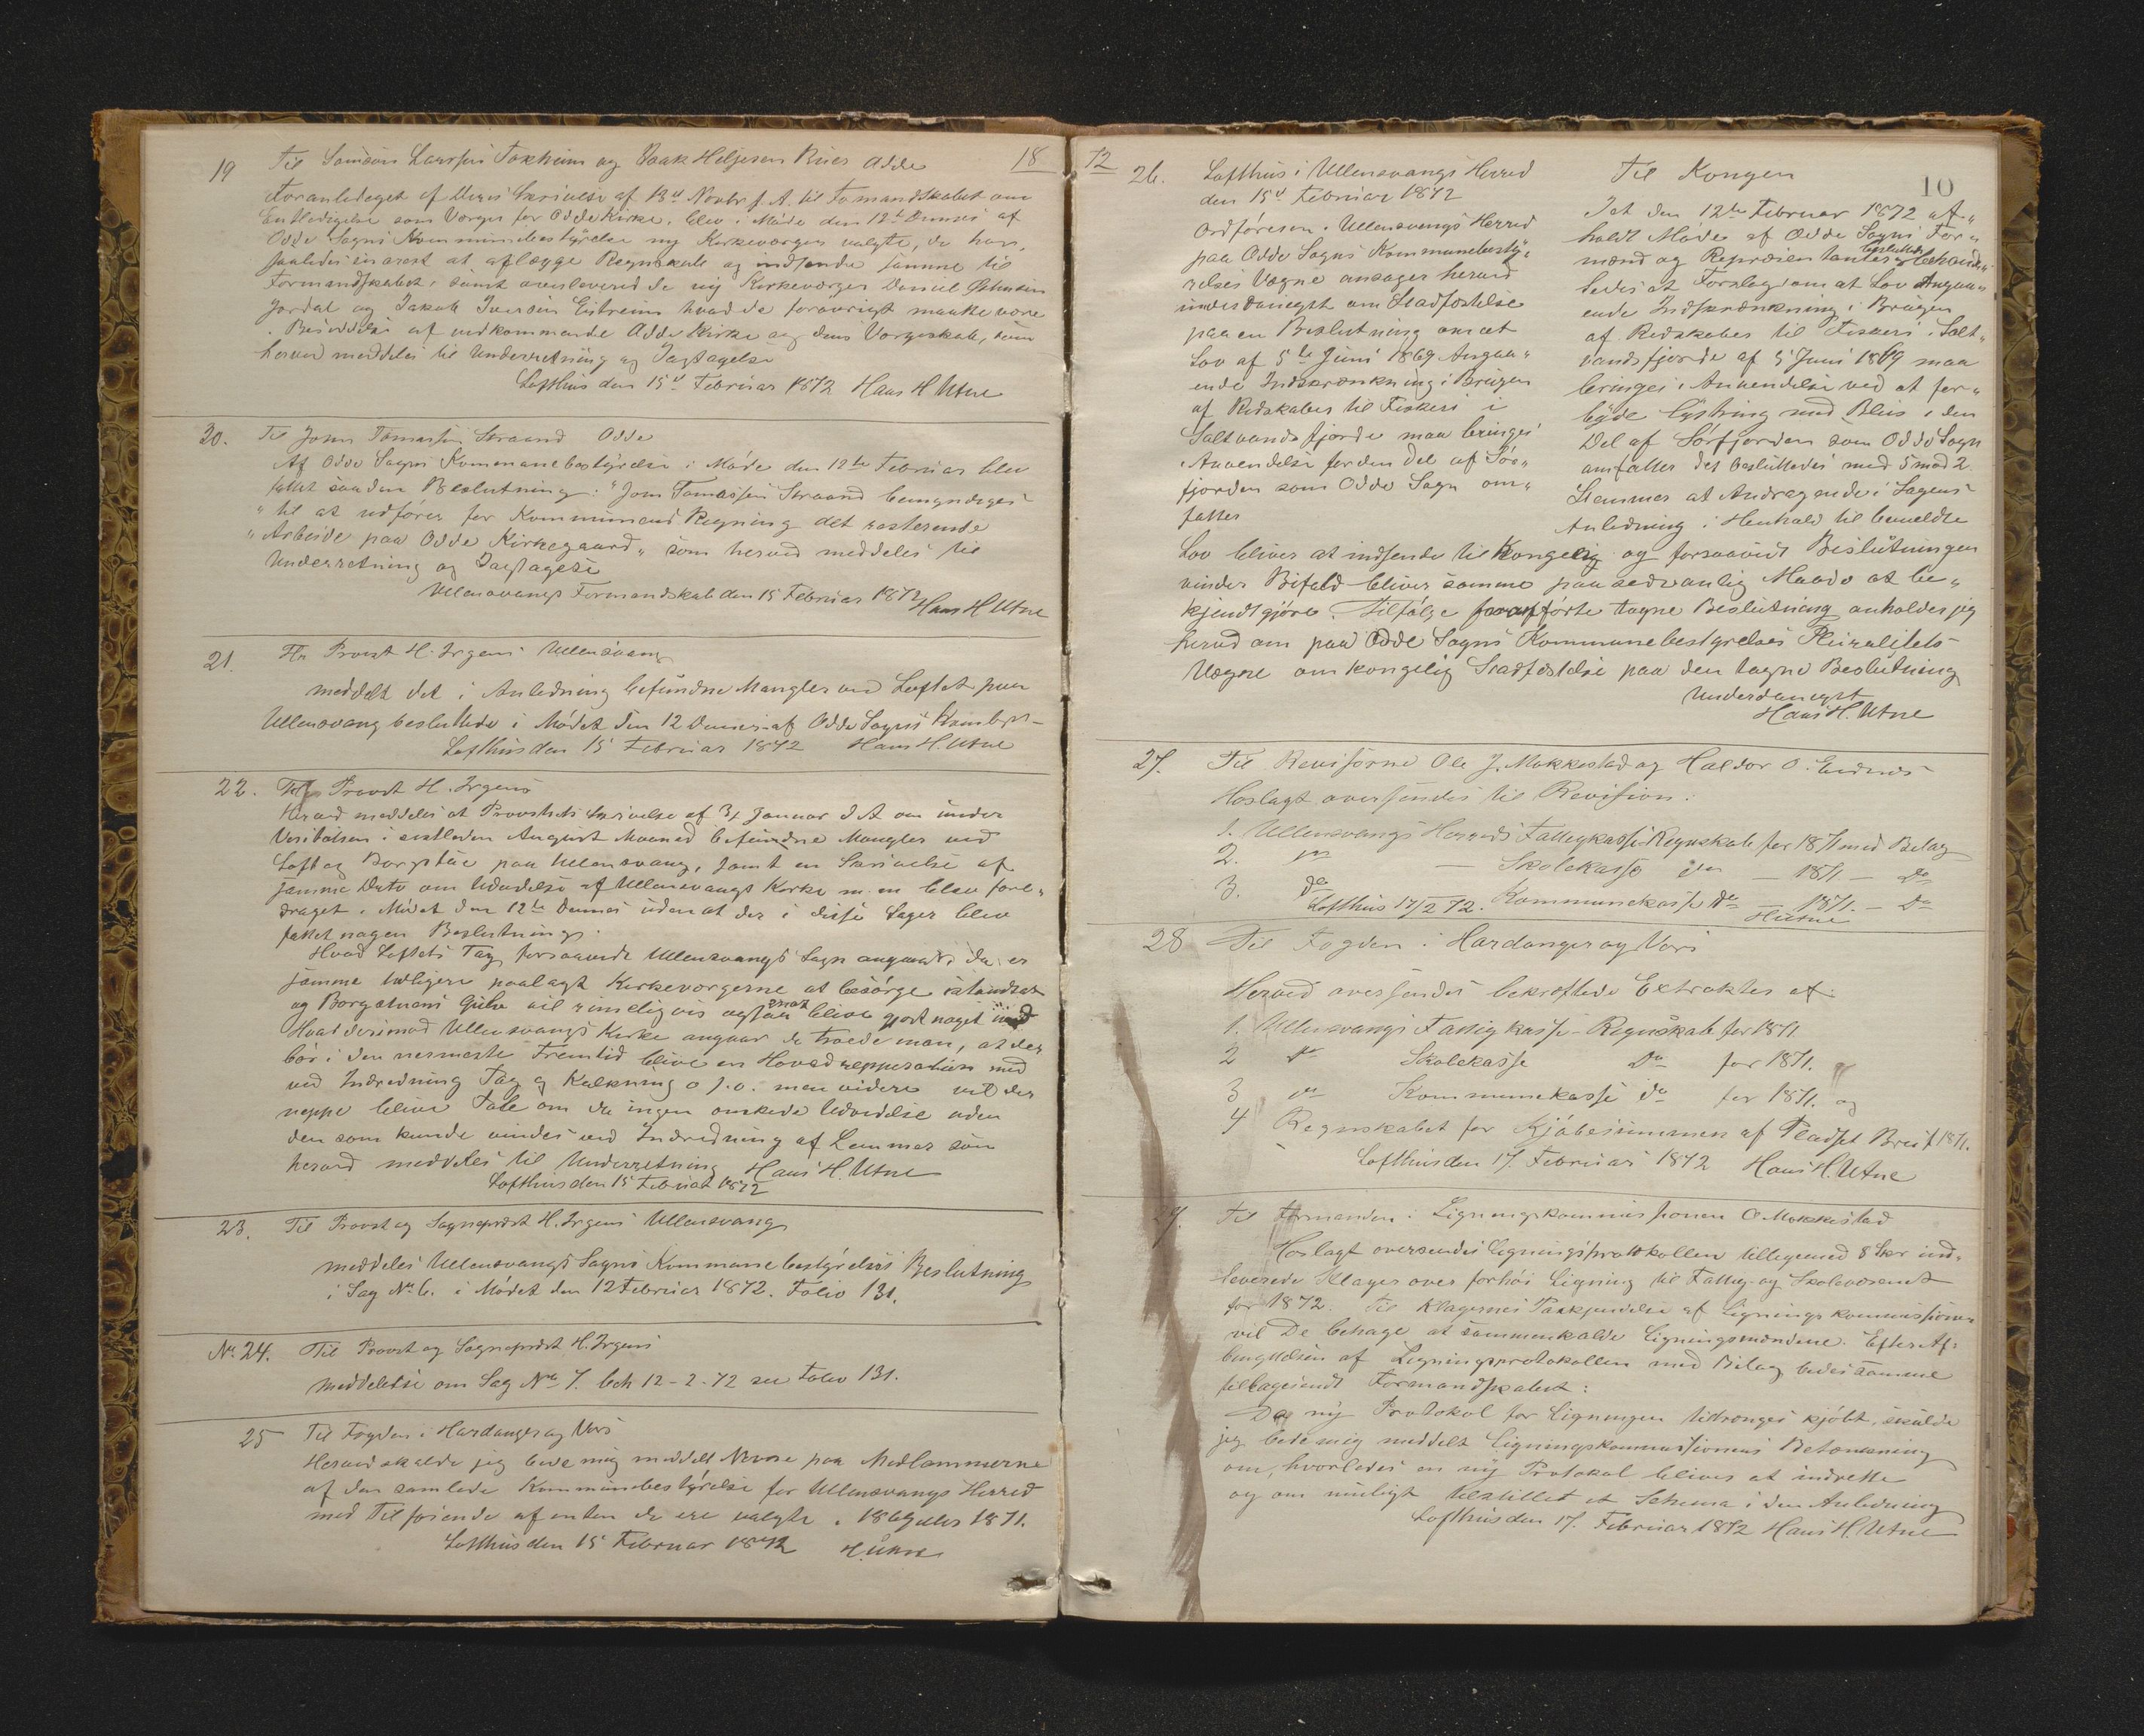 18
19 Til Samson Larsen Tokheim og Isak Heljesen Buer Odde
Foranlediget af Deres Skrivelse af 13de Novbr f. A. til Formandskabet om
Entledigelse som Værger for Odde Kirke, blev i Møde den 12te Dennes af
Odde Sogns Kommunebestyrelse ny Kirkeværger valgte, De har,
saaledes snarest at aflægge Regnskab og indsende samme til
Formandskabet, samt overlevered de ny Kirkeværger Daniel Johnsen
Jordal og Jakob Iversen Eitreim hvad De forøvrigt maatte være
i Besiddelse af vedkommende Odde Kirke og dens Værgeskab, som
herved meddeles til Underretning og Iagtagelse
Lofthus den 15de Februar 1872 Hans H Utne
20. Til Jon Tomassen Straand Odde
Af Odde Sogns Kommunebestyrelse i Møde den 12te Februar blev
fattet saadan Beslutning: "Jon Tomassen Straand bemyndiges
" til at udføres for Kommunens Regning det resterende
" Arbeide paa Odde Kirkegaard" som herved meddeles til
Underretning og Iagtagelse
Ullensvangs Formandskab den 15 Februar 1872 Hans H Utne
21. Hr Provst H. Irgens Ullensvang
meddelt det i Anledning befundne Mangler ved Loftet paa
Ullensvang besluttede i Mødet den 12 Dennes af Odde Sogns Kombst-
Lofthus den 15 Februar 1872 Hans H. Utne
22. Til Provst H. Irgens
Herved meddeles at Provstets Skrivelse af 31 Januar d A om under
Visitatsen i sidstleden August Maaned befundne Mangler ved
Loft og Borgstue paa Ullensvang, samt en Skrivelse af
samme Dato om Udvidelse af Ullensvangs Kirke m. m. blev fore-
draget i Mødet den 12te Dennes uden at der i disse Sager blev
fattet nogen Beslutning.
Hvad Loftets Tag forsaavidt Ullensvangs Sogn angaar, da er
samme tidligere paalagt Kirkeværgerne at besørge istandsat
og Borgstuens Gulv vil rimeligvis ogsaa snart blive gjort noget ved
Hvad derimod Ullensvangs Kirke angaar da troede man, at der
bør i den nærmeste Fremtid blive en Hovedrepperation med
ved Indredning Tag og Kalkning o. s. v. men videre vil der
neppe blive Tale om da ingen ønskede Udvidelse uden
den som kunde vindes ved Indredning af Lemmer som
herved meddeles til Underretning Hans H. Utne
Lofthus den 15 Februar 1872
23. Til Provst og Sogneprest H. Irgens Ullensvang
meddeles Ullensvangs Sogns Kommunebestyrelses Beslutning
i Sag No 6. i Mødet den 12 Februar 1872. Folio 131.
No 24. Til Provst og Sogneprest H. Irgens
Meddelelse om Sag No 7. beh 12-2-72 see Folio 131.
25 Til Fogden i Hardanger og Vors
Herved skulde jeg bede mig meddelt Navne paa Medlemmerne
af den samlede Kommunebestyrelse for Ullensvangs Herred
med Tilføiende af enten de ere valgte i 1869 eller 1871.
Lofthus den 15 Februar 1872 H. Utne
72
10
26. Lofthus i Ullensvangs Herred
den 15de Februar 1872
Ordføreren i Ullensvangs Herred
paa Odde Sogns Kommunebesty-
relses Vægne ansøger herved
underdanigst om Stadfæstelse
paa en Beslutning om at
Lov af 5te Juni 1869 Angaa-
ende Indskrænkning i Brugen
af Redskaber til Fiskeri i
Saltvandsfjorde maa bringes
i Anvendelse for den Del af Sør-
fjorden som Odde Sogn om-
fatter
Til Kongen
I et den 12te Februar 1872 af-
holdt Møde af Odde Sogns For-
mænd og Repræsentanter besluttedes behand-
ledes et Forslag om at Lov Angaa-
ende Indskrænkning i Brugen
af Redskaber til Fiskeri i Salt-
vandsfjorde af 5 Juni 1869 maa
bringes i Anvendelse ved at for-
byde Lystring med Blus i den
Del af Sørfjorden som Odde Sogn
omfatter det besluttedes med 5 mod 2
Stemmer at Andragende i Sagens
Anledning i Henhold til bemeldte
Lov bliver at indsende til Kongelig og forsaavidt Beslutningen
vinder Bifald bliver samme paa sedvanlig Maade at be-
kjendtgjøre. Tilfølge foranførte tagne Beslutning anholder jeg
herved om paa Odde Sogns Kommunebestyrelses Pluralitets
Vægne om kongelig Stadfæstelse paa den tagne Beslutning
Underdanigst
Hans H. Utne
27. Til Revisorne Ole J. Mokkestad og Haldor O. Eidnes
Hoslagt oversendes til Revision:
1. Ullensvangs Herreds Fattigkasse-Regnskab for 1871 med Bilag
2. do — Skolekasse do — 1871 — Do
3. do Kommunekasse do 1871. — Do
Lofthus 17/2 72. HUtne
28 Til Fogden i Hardanger og Vors
Herved oversendes bekræftede Extrakter af
1. Ullensvangs Fattigkasse-Regnskab for 1871
2 do Skolekasse Do for 1871.
3 do Kommunekasse do for 1871. og
4 Regnskabet for Kjøbesummen af Pladset Breit 1871.
Lofthus den 17. Februar 1872 Hans H. Utne
29. Til Formanden i Ligningskommissionen O Mokkestad
Hoslagt oversendes Ligningsprotokollen tilligemed 8 Skr ind-
leverede Klager over forhøi Ligning til Fattig- og Skolevæsenet
for 1872. Til Klagernes Paakjendelse af Ligningskommissionen
vil De behage at sammenkalde Ligningsmændene. Efter Af-
benyttelsen af Ligningsprotokollen med Bilag bedes samme
tilbagesendt Formandskabet:
Da ny Protokol for Ligningen tiltrænges kjøbt, skulde
jeg bede mig meddelt Ligningskommissionens Betænkning
om, hvorledes en ny Protokol bliver at indrette
og om muligt tilstillet et Schema i den Anledning
Lofthus den 17. Februar 1872 Hans H. Utne